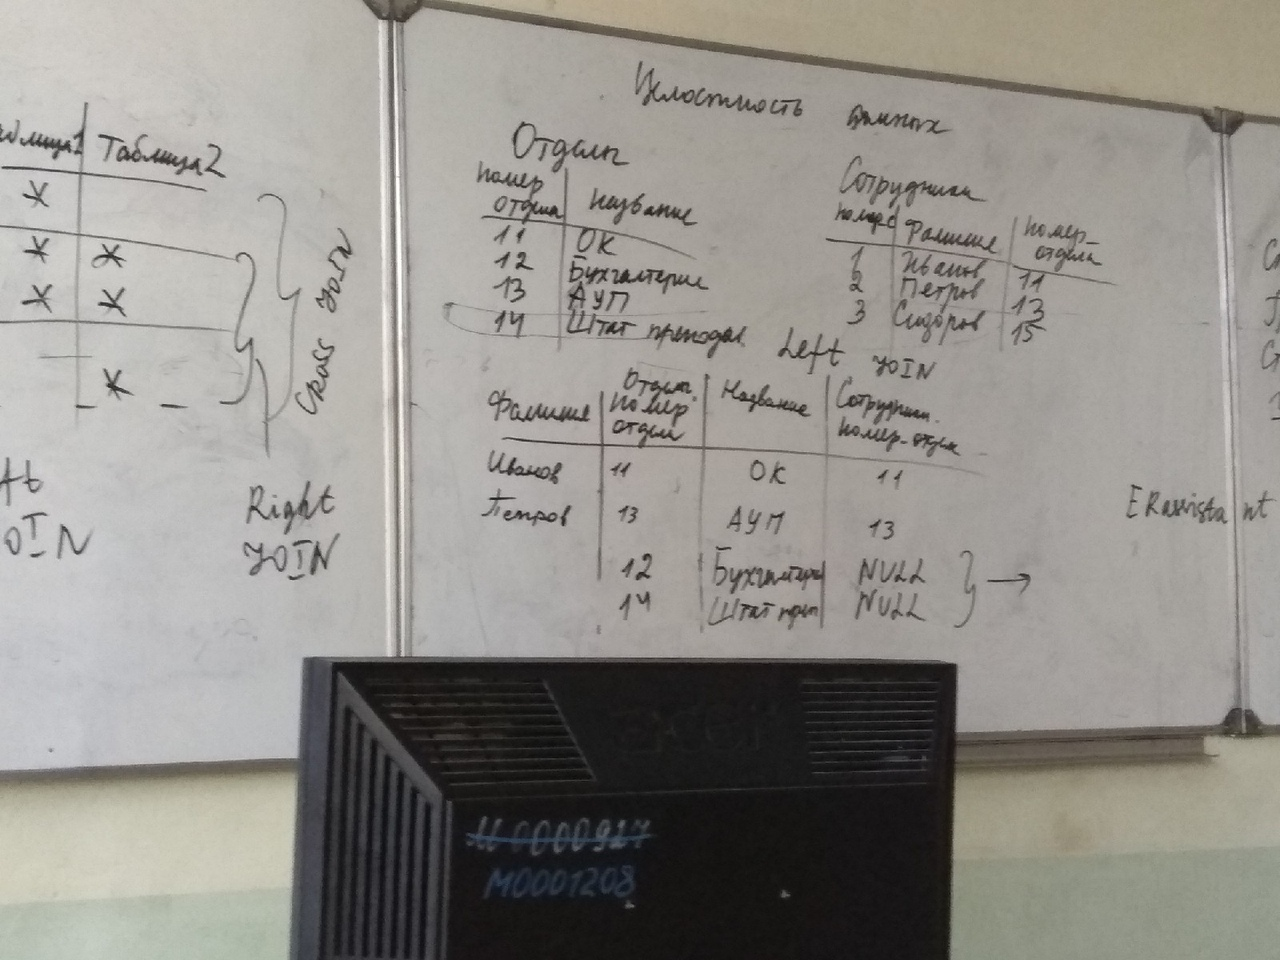 Таблица 2
CROSS JOIN
JOIN
Right
JOIN
Целостность данных
Отделы
номер отдела | название
11 | ОК
12 | Бухгалтерия
13 | АУП
14 | Штат преподав.
Сотрудники
Фамилия | номер_отдела
1 | Иванов | 11
2 | Петров | 13
3 | Сидоров | 15
Left JOIN
Фамилия | Отделы. номер отдел | Название | Сотрудники. номер_отдел
Иванов | 11 | ОК | 11
Петров | 13 | АУП | 13
12 | Бухгалтери | NULL
14 | Штат преп | NULL
acer
M0000927
M0001208